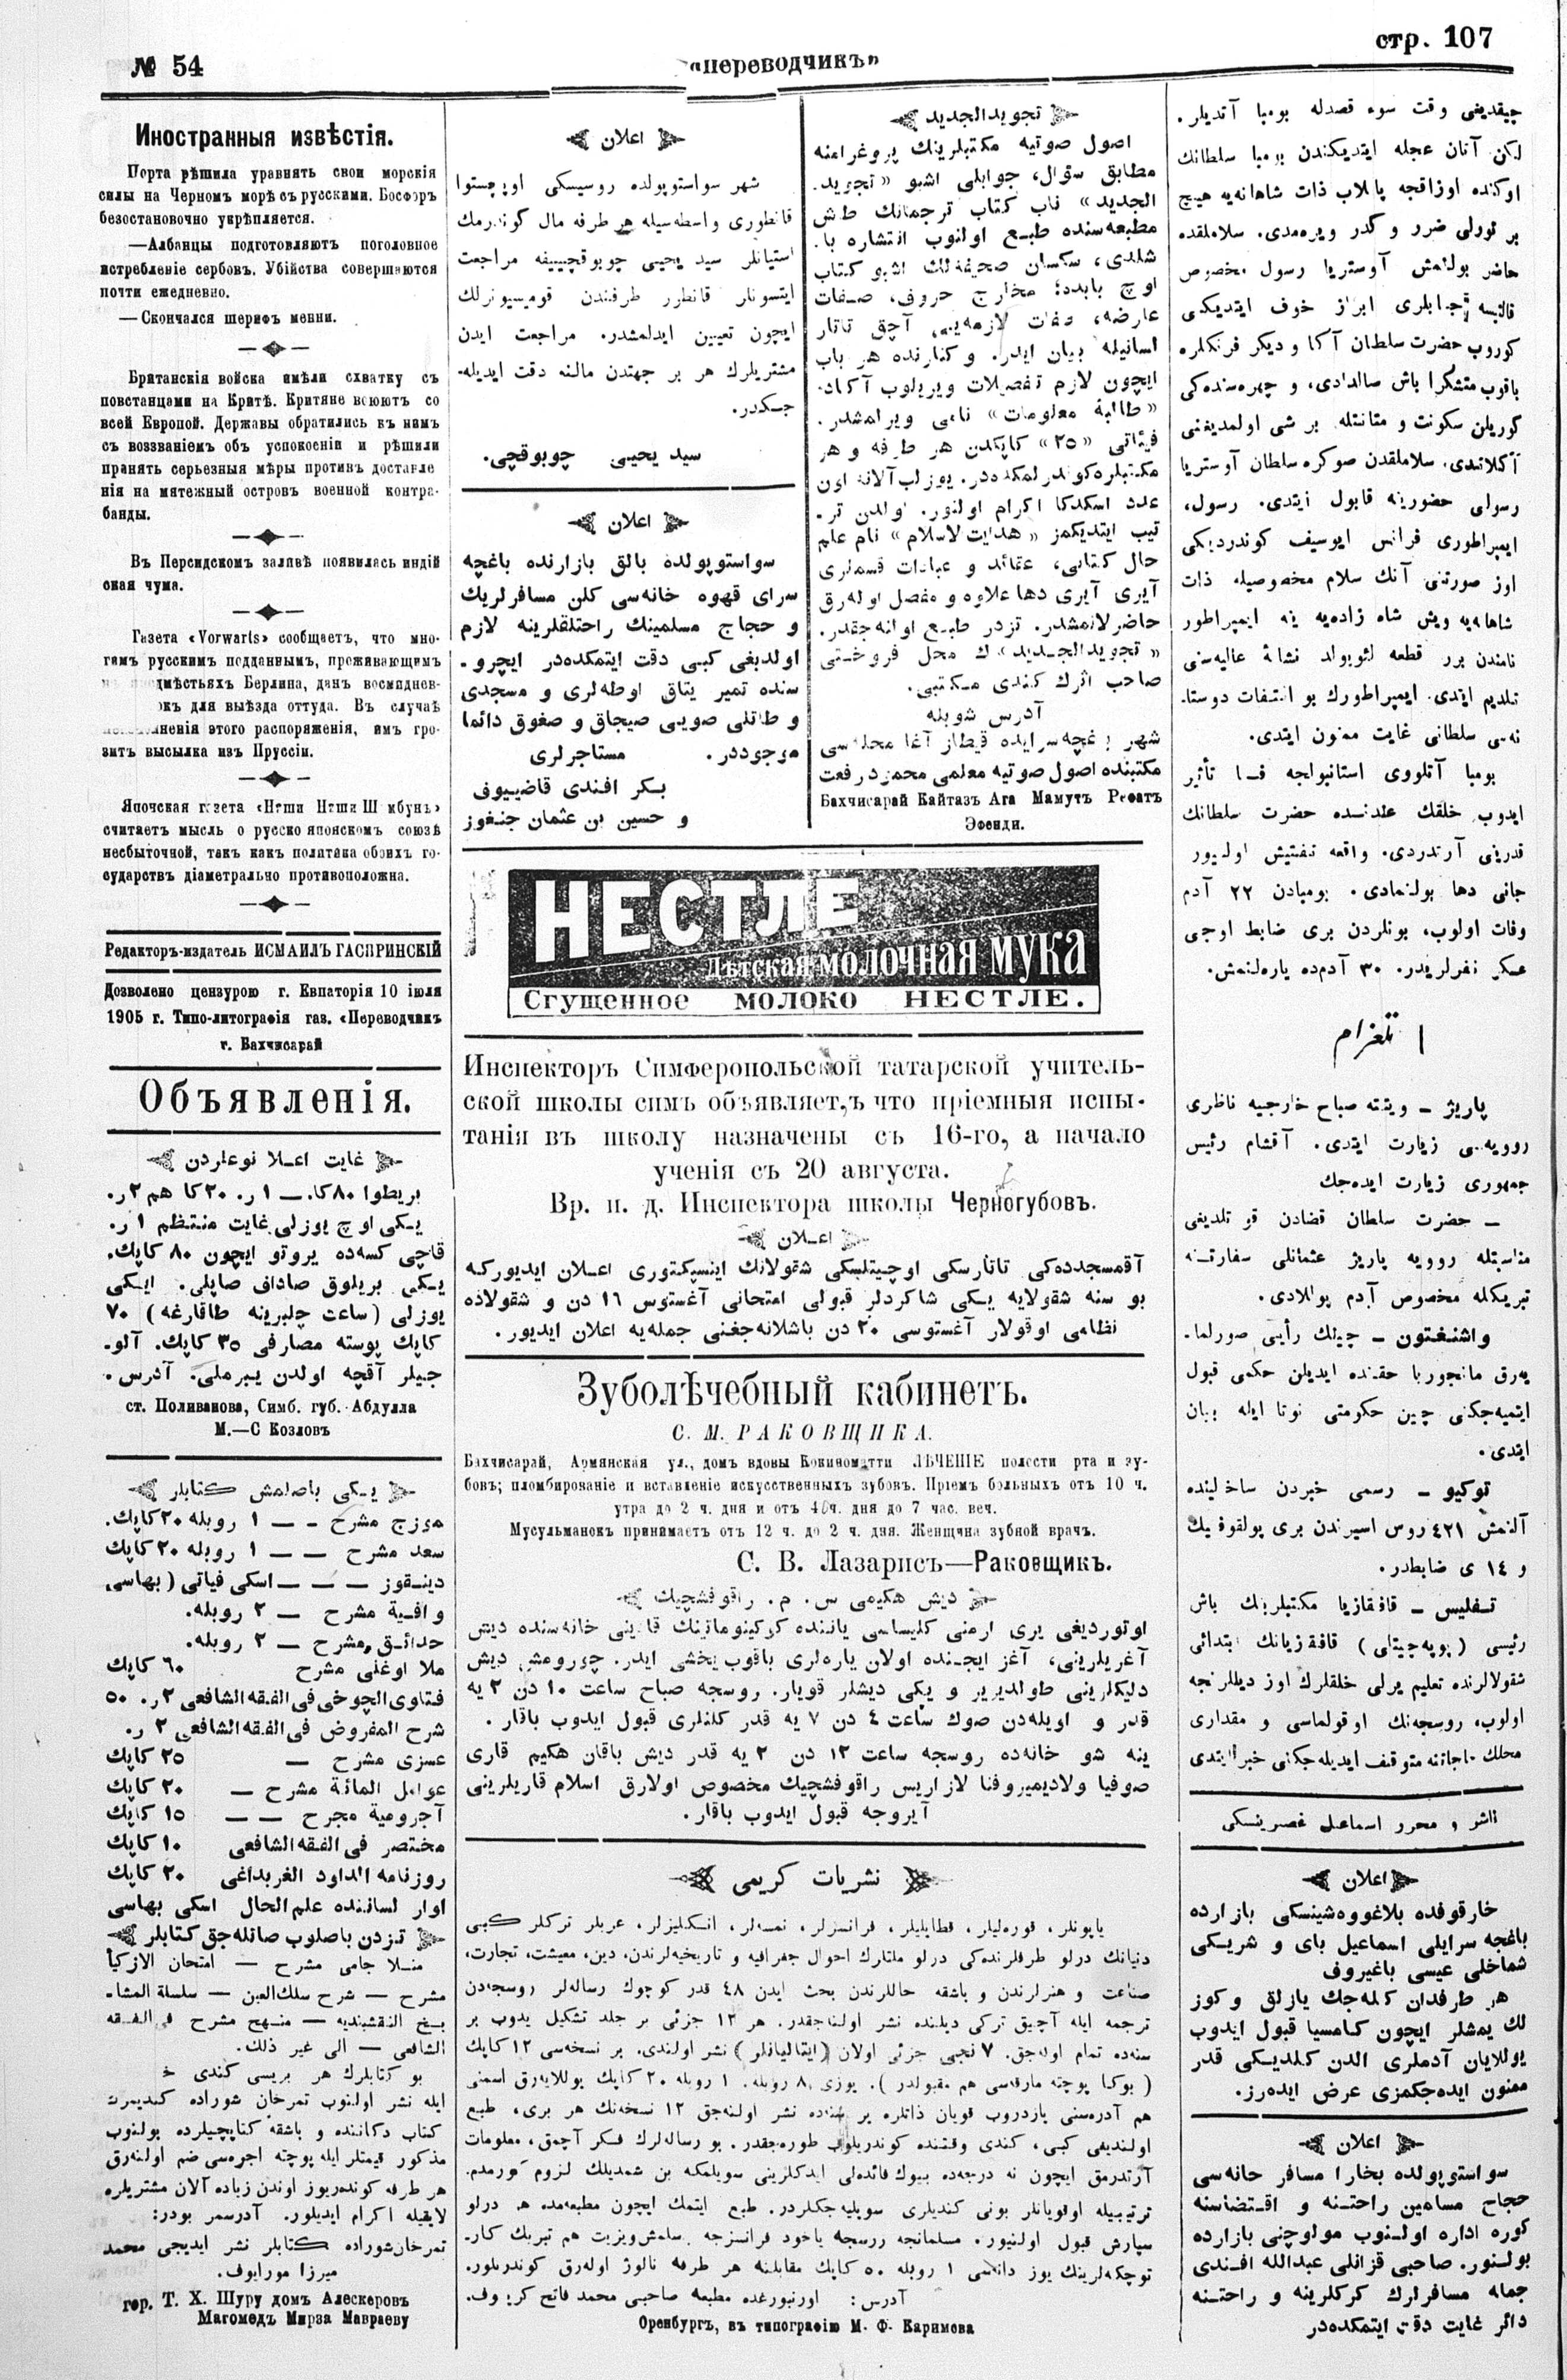 № 54
«Переводчикъ»
стр. 107
Иностранныя извѣстія.
Порта рѣшила уравнять свои морскія
силы на Черномъ морѣ съ русскими. Босфоръ
безостановочно укрѣпляется.
—Албанцы подготовляютъ поголовное
истребленіе сербовъ. Убійства совершаются
почти ежедневно.
—Скончался шерифъ мекки.
Британскія войска имѣли схватку съ
повстанцами на Критѣ. Критяне воюютъ со
всей Европой. Державы обратились къ нимъ
съ воззваніемъ объ успокоеніи и рѣшили
принять серьезныя мѣры противъ доставле
нія на мятежный островъ военной контра-
банды.
Въ Персидскомъ заливѣ появилась индій
ская чума.
Газета «Vorwarts» сообщаетъ, что мно-
гимъ русскимъ подданнымъ, проживающимъ
дмѣстьяхъ Берлина, данъ восмиднев-
окъ для выѣзда оттуда. Въ случаѣ
ненія этого распоряженія, имъ гро-
зитъ высылка изъ Пруссіи.
Японская газета «Ниши Ниши Ш мбунъ»
считаетъ мысль о русско японскомъ союзѣ
несбыточной, такъ какъ политика обоихъ го-
сударствъ діаметрально противоположна.
Редакторъ-издатель ИСМАИЛЪ ГАСПРИНСКІЙ
Дозволено цензурою г. Евпаторія 10 іюля
1905 г. Типо-литографія газ. «Переводчикъ
г. Бахчисарай
Объявленія.
غايت اعلا نوعلردن
بريطوا ٨٠ كا. — ١ ر. ٢٠ كا هم ٢ ر.
يكى اوچ يوزلى غايت منتظم ١ ر.
قاچى كسه‌ده يروتو ايچون ٨٠ كاپك.
يكى بريلوق صاداف صاپلى. ايكى
يوزلى (ساعت چلبرينه طاقارغه) ٧٠
كاپك پوسته مصارفى ٣٥ كاپك. آلو-
جيلر آقچه اولدن يبرملى. آدرس.
ст. Поливанова, Симб. губ. Абдулла
М.—С Козловъ
يكى باصلمش كتابلر
موزج مشرح — — ١ روبله ٢٠ كاپك.
سعد مشرح — — ١ روبله ٢٠ كاپك
دينقوز — — — اسكى فياتى (بهاسى
وافية مشرح — ٢ روبله.
حدائق مشرح — ٢ روبله.
ملا اوغلى مشرح ٦٠ كاپك
فتاوى الچوخى فى الفقه الشافعى ٢ ر. ٥٠
شرح المفروض فى الفقه الشافعى ٢ ر.
عزى مشرح — ٢٥ كاپك
عوامل المائة مشرح — ٢٠ كاپك
آجرومية مجرح — — ١٥ كاپك
مختصر فى الفقه الشافعى ١٠ كاپك
روزنامه الداود الغربداغى ٢٠ كاپك
اوار لساننده علم الحال اسكى بهاسى
تزدن باصلوب صاتله‌جق كتابلر
منلا جامى مشرح — امتحان الازكيا
مشرح — شرح سلك العين — سلسلة المشا-
يخ النقشبنديه — منهج مشرح فى الفقه
الشافعى — الى غير ذلك.
بو كتابلرك هر بريسى كندى خ
ايله نشر اولنوب تمرخان شوراده كنديمزك
كتاب دكاننده و باشقه كتابچيلرده بولنوب
مذكور قيمتلر ايله پوچته اجره‌سى ضم اولنه‌رق
هر طرفه كوندريور اوندن زياده آلان مشتريلره
لايقيله اكرام ايديلور. آدرسمز بودر:
تمرخان شوراده كتابلر نشر ايديجى محمد
ميرزا مورايوف.
гор. Т. Х. Шуру домъ Алескеровъ
Магомедъ Мирза Мавраеву
اعلان
شهر سواستوپولده روسيسكى اوپچستوا
قانطورى واسطه‌سيله هر طرفه مال كوندرمك
استيانلر سيد يحيى چوبوقچييفه مراجعت
ايتسونلر قانطور طرفندن قوميسيونرلك
ايچون تعيين ايدلمشدر. مراجعت ايدن
مشتريلرك هر بر جهتدن مالنه دقت ايديله-
جكدر.
سيد يحيى چوبوقچى.
اعلان
سواستوپولده بالق بازارنده باغچه
سراى قهوه خانه‌سى كلن مسافرلريك
و حجاج مسلمينك راحتلقلرينه لازم
اولديغى كبى دقت ايتمكده‌در ايچرو-
سنده تمير يتاق اوطه‌لرى و مسجدى
و طاتلى صويى صيجاق و صغوق دائما
موجوددر. مستاجرلرى
بكر افندى قاضييوف
و حسين بن عثمان جنغوز
تجويد الجديد
اصول صوتيه مكتبلرينك پروغرامنه
مطابق سؤال، جوابلى اشبو «تجويد
الجديد» نام كتاب ترجمانك طاش
مطبعه‌سنده طبع اولنوب انتشاره با-
شلدى، سكسان صحيفه‌لك اشبو كتاب
اوچ بابدر؛ مخارج حروف، صفات
عارضه، صفات لازمه‌يى آچق تاتار
لسانيله بيان ايدر. و كنارنده هر باب
ايچون لازم تفصيلات ويريلوب آكاد-
«طالبة معلومات» نامى ويرلمشدر.
فيئاتى «٢٥» كاپكدن هر طرفه و هر
مكتبلره كوندرلمكده‌در. يوزلب آلانه اون
عدد اسكدكا اكرام اولنور. اولدن تر-
تيب ايتديكمز «هدايت لاسلام» نام علم
حال كتابى، عقائد و عبادات قسملرى
آيرى آيرى دها علاوه و مفصل اوله‌رق
حاضرلانمشدر. تزدر طبع اولنه‌جقدر.
«تجويد الجديد» ك محل فروختى
صاحب اثرك كندى مكتبى.
آدرس شويله
شهر باغچه‌سرايده قيطاز آغا محله‌سى
مكتبنده اصول صوتيه معلمى محمود رفعت
Бахчисарай Кайтазъ Ага Мамутъ Рефатъ
Эфенди.
НЕСТЛЕ
Дѣтская МОЛОЧНАЯ МУКА
Сгущенное МОЛОКО НЕСТЛЕ.
Инспекторъ Симферопольской татарской учитель-
ской школы симъ объявляет,ъ что пріемныя испы-
танія въ школу назначены съ 16-го, а начало
ученія съ 20 августа.
Вр. и. д. Инспектора школы Черногубовъ.
اعلان
آقمسجدده‌كى تاتارسكى اوچيتلسكى شقولانك اينسپكتورى اعلان ايديوركه
بو سنه شقولايه يكى شاكردلر قبولى امتحانى آغستوس ١٦ دن و شقولاده
نظامى اوقولار آغستوسى ٢٠ دن باشلانه‌جغنى جمله‌يه اعلان ايديور.
Зуболѣчебный кабинетъ.
С. М. РАКОВЩИКА.
Бахчисарай, Армянская ул., домъ вдовы Кокиноматти ЛѢЧЕНІЕ полости рта и зу-
бовъ; пломбированіе и вставленіе искусственныхъ зубовъ. Пріемъ больныхъ отъ 10 ч.
утра до 2 ч. дня и отъ 4 ч. дня до 7 час. веч.
Мусульманокъ принимаетъ отъ 12 ч. до 2 ч. дня. Женщина зубной врачъ.
С. В. Лазарисъ—Раковщикъ.
ديش هكيمى س. م. راقوفشچيك
اوتورديغى يرى ارمنى كليساسى ياننده كوكينوماتينك قادينى خانه‌سنده ديش
آغريلرينى، آغز ايچنده اولان ياره‌لرى باقوب يخشى ايدر. چورومش ديش
دليكلرينى طولديرير و يكى ديشلر قويار. روسجه صباح ساعت ١٠ دن ٢ يه
قدر و اويله‌دن صوك ساعت ٤ دن ٧ يه قدر كلنلرى قبول ايدوب باقار.
ينه شو خانه‌ده روسجه ساعت ١٢ دن ٢ يه قدر ديش باقان هكيم قارى
صوفيا ولاديميروفنا لازاريس راقوفشچيك مخصوص اولارق اسلام قاريلرينى
آيروجه قبول ايدوب باقار.
نشريات كريمى
ياپونلر، قوره‌ليلر، قطايليلر، فرانسزلر، نمسه‌لر، انكليزلر، عربلر تركلر كبى
دنيانك درلو طرفلرنده‌كى درلو ملتلرك احوال جغرافيه و تاريخيه‌لرندن، دين، معيشت، تجارت،
صناعت و هنرلرندن و باشقه حاللرندن بحث ايدن ٤٨ قدر كوچوك رساله‌لر روسجه‌دن
ترجمه ايله آچيق تركى ديلنده نشر اولنه‌جقدر. هر ١٢ جزئى بر جلد تشكيل يدوب بر
سنه‌ده تمام اوله‌جق. ٧ نجى جزئى اولان (ايتاليانلر) نشر اولندى. بر نسخه‌سى ١٢ كاپك
(بوكا پوچته مارقه‌سى هم مقبولدر). يوزى ٨ روبله. ١ روبله ٢٠ كاپك يوللايه‌رق اسمنى
هم آدره‌سنى يازدروب قويان ذاتلره بر سنه‌ده نشر اولنه‌جق ١٢ نسخه‌نك هر برى، طبع
اولنديغى كبى، كندى وقتنده كوندريلوب طوره‌جقدر. بو رساله‌لرك فكر آچمق، معلومات
آرتدرمق ايچون نه درجه‌ده بيوك فائده‌لى ايدكلرينى سويلمكه بن شمديلك لزوم كورمدم.
ترتيبيله اوقويانلر بونى كنديلرى سويليه‌جكلردر. طبع ايتمك ايچون مطبعه‌مده هر درلو
سپارش قبول اولنيور. مسلمانجه روسجه ياخود فرانسزجه باسلمش ويزيت هم تبريك كار-
توچكه‌لرينك يوز دانه‌سى ١ روبله ٥٠ كاپك مقابلنه هر طرفه نالوژ اوله‌رق كوندريلور.
آدرس: اورنبورغده مطبعه صاحبى محمد فاتح كريموف.
Оренбургъ, въ типографію М. Ф. Каримова
چيقديغى وقت سوء قصدله بومبا آتديلر.
لكن آتان عجله ايتديكندن بومبا سلطانك
اوكنده اوزاقجه پاتلاب ذات شاهانه‌يه هيچ
بر تورلى ضرر و كدر ويره‌مدى. سلاملقده
حاضر بولنمش آوستريا رسول مخصوص
قالنسه جنابلرى ابراز خوف ايتديكنى
كوروب حضرت سلطان آكا و ديكر فرنكلره
باقوب متشكرا باش صاللادى، و چهره‌سنده‌كى
كوريلن سكونت و متانتله بر شى اولمديغنى
آكلاتدى. سلاملقدن صوكره سلطان آوستريا
رسولى حضورينه قابول ايتدى. رسول،
ايمپراطورى فرانس ايوسيف كوندرديكى
اوز صورتنى آنك سلام مخصوصيله ذات
شاهانه‌يه ويش شاه زاده‌يه ينه ايمپراطور
نامندن برر قطعه لئوپولد نشانهٔ عاليه‌سنى
تقديم ايتدى. ايمپراطورك بو التفات دوستا-
نه‌سى سلطانى غايت ممنون ايتدى.
بومبا آتلووى استانبولجه فنا تأثير
ايدوب خلقك عندنده حضرت سلطانك
قدرينى آرتدردى. واقعه تفتيش اولنيور
جانى دها بولنمادى. بومبادن ٢٢ آدم
وفات اولوب، بونلردن برى ضابط اوجى
عسكر نفرلريدر. ٣٠ آدم‌ده ياره‌لنمش.
تلغرام
پاريژ — ويتته صباح خارجيه ناظرى
روويه‌يى زيارت ايتدى. آقشام رئيس
جمهورى زيارت ايده‌جك
— حضرت سلطان قضادن قورتلديغى
مناسبتله روويه پاريژ عثمانلى سفارتنه
تبريكله مخصوص آدم يوللادى.
واشنغتون — چينك رأيى صورلما-
يه‌رق مانجوريا حقنده ايديلن حكمى قبول
ايتميه‌جكنى چين حكومتى نوتا ايله بيان
ايتدى.
توكيو — رسمى خبردن ساخالينده
آلنمش ٤٢١ روس اسيرندن برى پولقوفنيك
و ١٤ ى ضابطدر.
تفليس — قافقازيا مكتبلرينك باش
رئيسى (پوپه‌چيتلى) قافقازيانك ابتدائى
شقولالرنده تعليم يرلى خلقلرك اوز ديللرنجه
اولوب، روسجه‌نك اوقولماسى و مقدارى
محلك حاجاتنه متوقف ايديله‌جكنى خبر ايتدى
ناشر و محررى اسماعيل غصپرينسكى
اعلان
خارقوفده بلاغووه‌شينسكى بازارده
باغچه سرايلى اسماعيل باى و شريكى
شماخلى عيسى باغيروف
هر طرفدان كله‌جك يازلق و كوز
لك يمشلر ايچون كامسيا قبول ايدوب
يوللايان آدملرى الدن كلديكى قدر
ممنون ايده‌جكمزى عرض ايده‌رز.
اعلان
سواستوپولده بخارا مسافر خانه‌سى
حجاج مسلمين راحتنه و اقتضاسنه
كوره اداره اولنوب مولوچنى بازارده
بولنور. صاحبى قزانلى عبدالله افندى
جمله مسافرلرك كركلرينه و راحتنه
دائر غايت دقت ايتمكده‌در